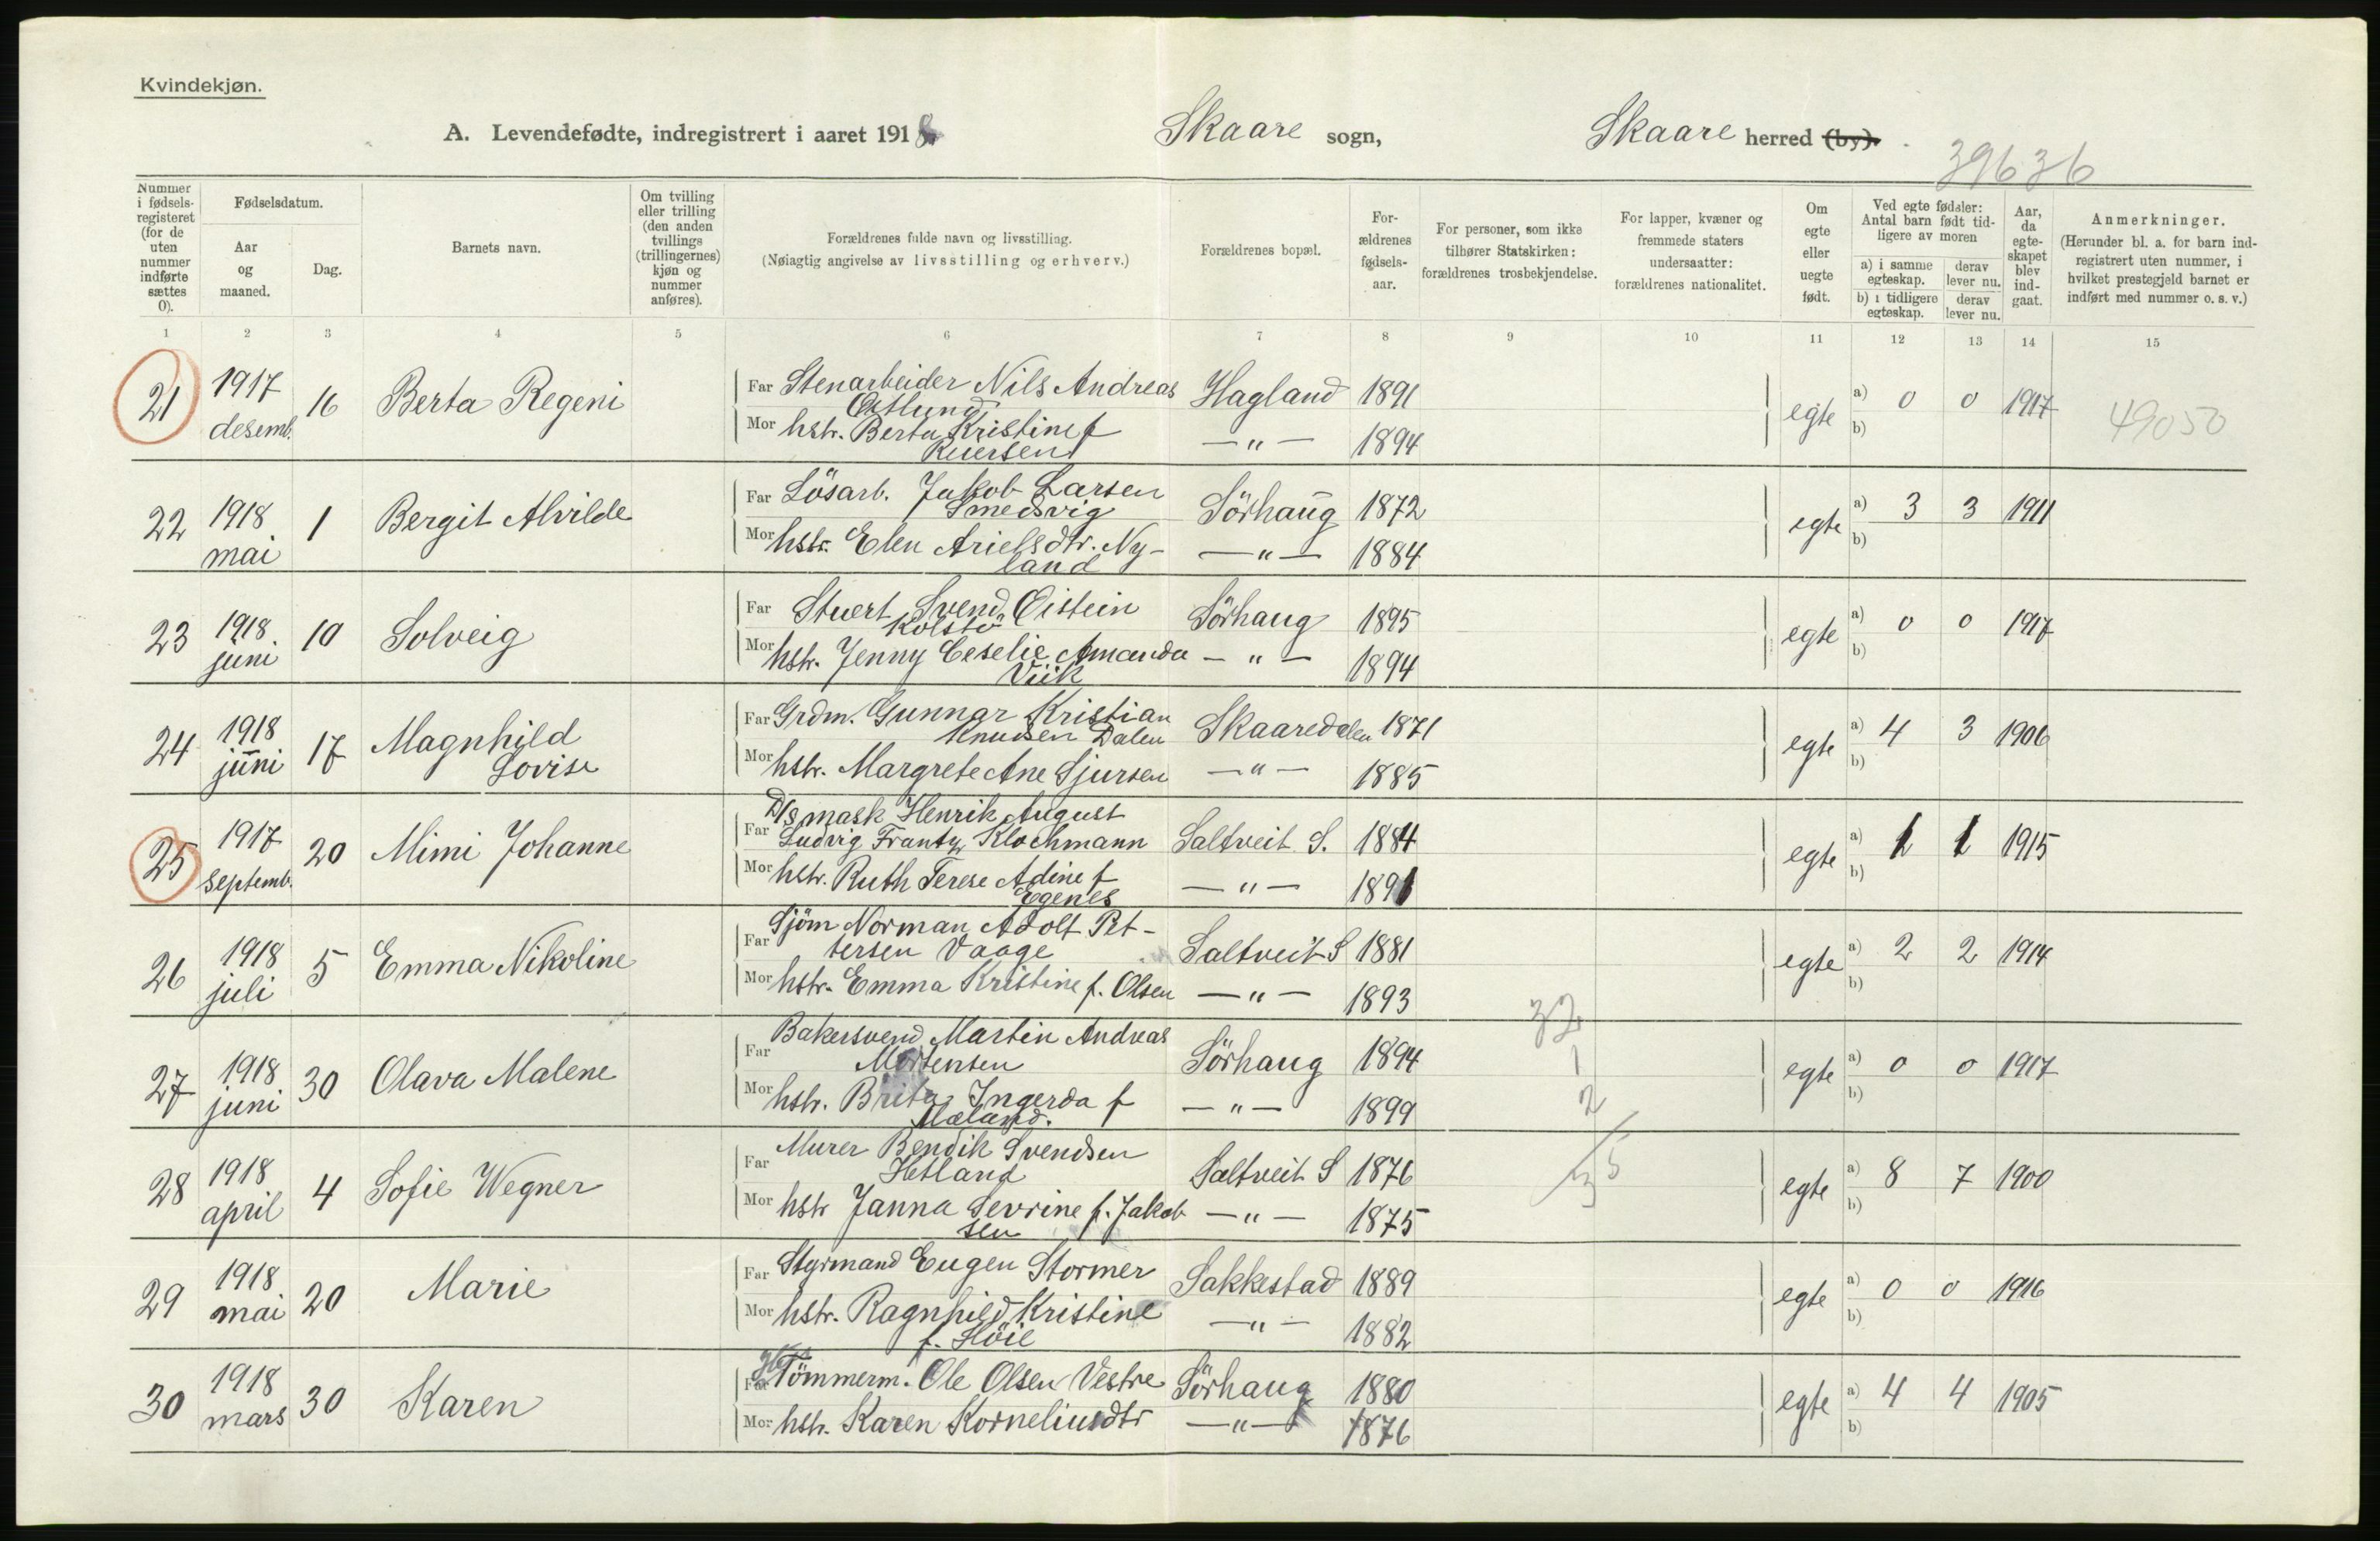 Kvindekjøn.
A. Levendefødte, indregistrert i aaret 1918. Skaare sogn, Skaare herred (by).
39636
Nummer i fødselsregisteret (for de uten nummer indførte sættes 0).
Fødselsdatum.
Aar og maaned.
Dag.
Barnets navn.
Om tvilling eller trilling (den anden tvillings (trillingernes) kjøn og nummer anføres).
Forældrenes fulde navn og livsstilling.
(Nøiagtig angivelse av livsstilling og erhverv.)
Forældrenes bopæl.
For-ældrenes fødsels-aar.
For personer, som ikke tilhører Statskirken: forældrenes trosbekjendelse.
For lapper, kvæner og fremmede staters undersaatter: forældrenes nationalitet.
Om egte eller uegte født.
Ved egte fødsler: Antal barn født tidligere av moren
a) i samme egteskap. derav lever nu.
b) i tidligere egteskap. derav lever nu.
Aar, da egte-skapet blev ind-gaat.
Anmerkninger.
(Herunder bl. a. for barn ind-registrert uten nummer, i hvilket prestegjeld barnet er indført med nummer o. s. v.)
1 2 3 4 5 6 7 8 9 10 11 12 13 14 15
21 1917 desemb. 16 Berta Regeni
Far Stenarbeider Nils Andreas Østlund Hagland 1891
Mor hstr. Berta Kristine f -"- 1894
egte a) 0 0 1917 49050
b)
22 1918 mai 1 Bergit Alvilde
Far Lösarb. Jakob Larsen Smedsvig Sörhaug 1872
Mor hstr. Elen Arielsdtr. Ny-land -"- 1884
egte a) 3 3 1911
b)
23 1918 juni 10 Solveig
Far Stuert Svend Øistein Kolstö Sörhaug 1895
Mor hstr. Jenny Ceselie Amanda Viik -"- 1894
egte a) 0 0 1917
b)
24 1918 juni 17 Magnhild Lovise
Far Grdm. Gunnar Kristian Knudsen Dalen Skaaredalen 1871
Mor hstr. Margrete Ane Sjursen -"- 1885
egte a) 4 3 1906
b)
25 1917 septemb. 20 Mimi Johanne
Far D/s mask Henrik August Ludvig Frantz Klochmann Saltveit S. 1884
Mor hstr. Ruth Terese Adine f Egenes -"- 1891
egte a) 1 1 1915
b)
26 1918 juli 5 Emma Nikoline
Far Sjöm Norman Adolf Pet-tersen Vaage Saltveit S 1881
Mor hstr. Emma Kristine f. Olsen -"- 1893
egte a) 2 2 1914
b)
32
1
2
27 1918 juni 30 Olava Malene
Far Bakersvend Martin Andreas Mortensen Sörhaug 1894
Mor hstr. Brita Ingerda f Mæland. -"- 1899
egte a) 0 0 1917
b)
28 1918 april 4 Sofie Wegner
Far Murer Bendik Svendsen Hetland Saltveit S 1876
Mor hstr Janna Sevrine f. Jakobsen -"- 1875
egte a) 8 7 1900
b)
35
29 1918 mai 20 Marie
Far Styrmand Eugen Stormer Sakkestad 1889
Mor hstr. Ragnhild Kristine f. Höie -"- 1882
egte a) 0 0 1916
b)
30 1918 mars 30 Karen
Far Tömmerm. Ole Olsen Vestre Sörhaug 1880
Mor hstr. Karen Korneliusdtr -"- 1876
egte a) 4 4 1905
b)